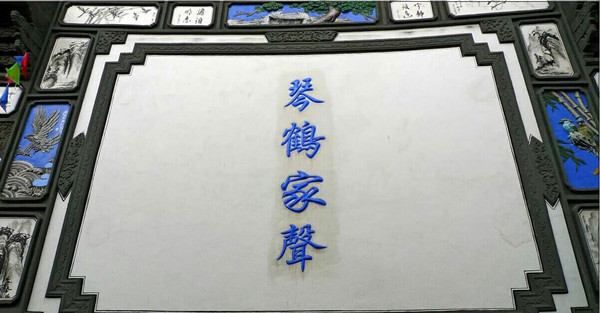 琴鶴家聲